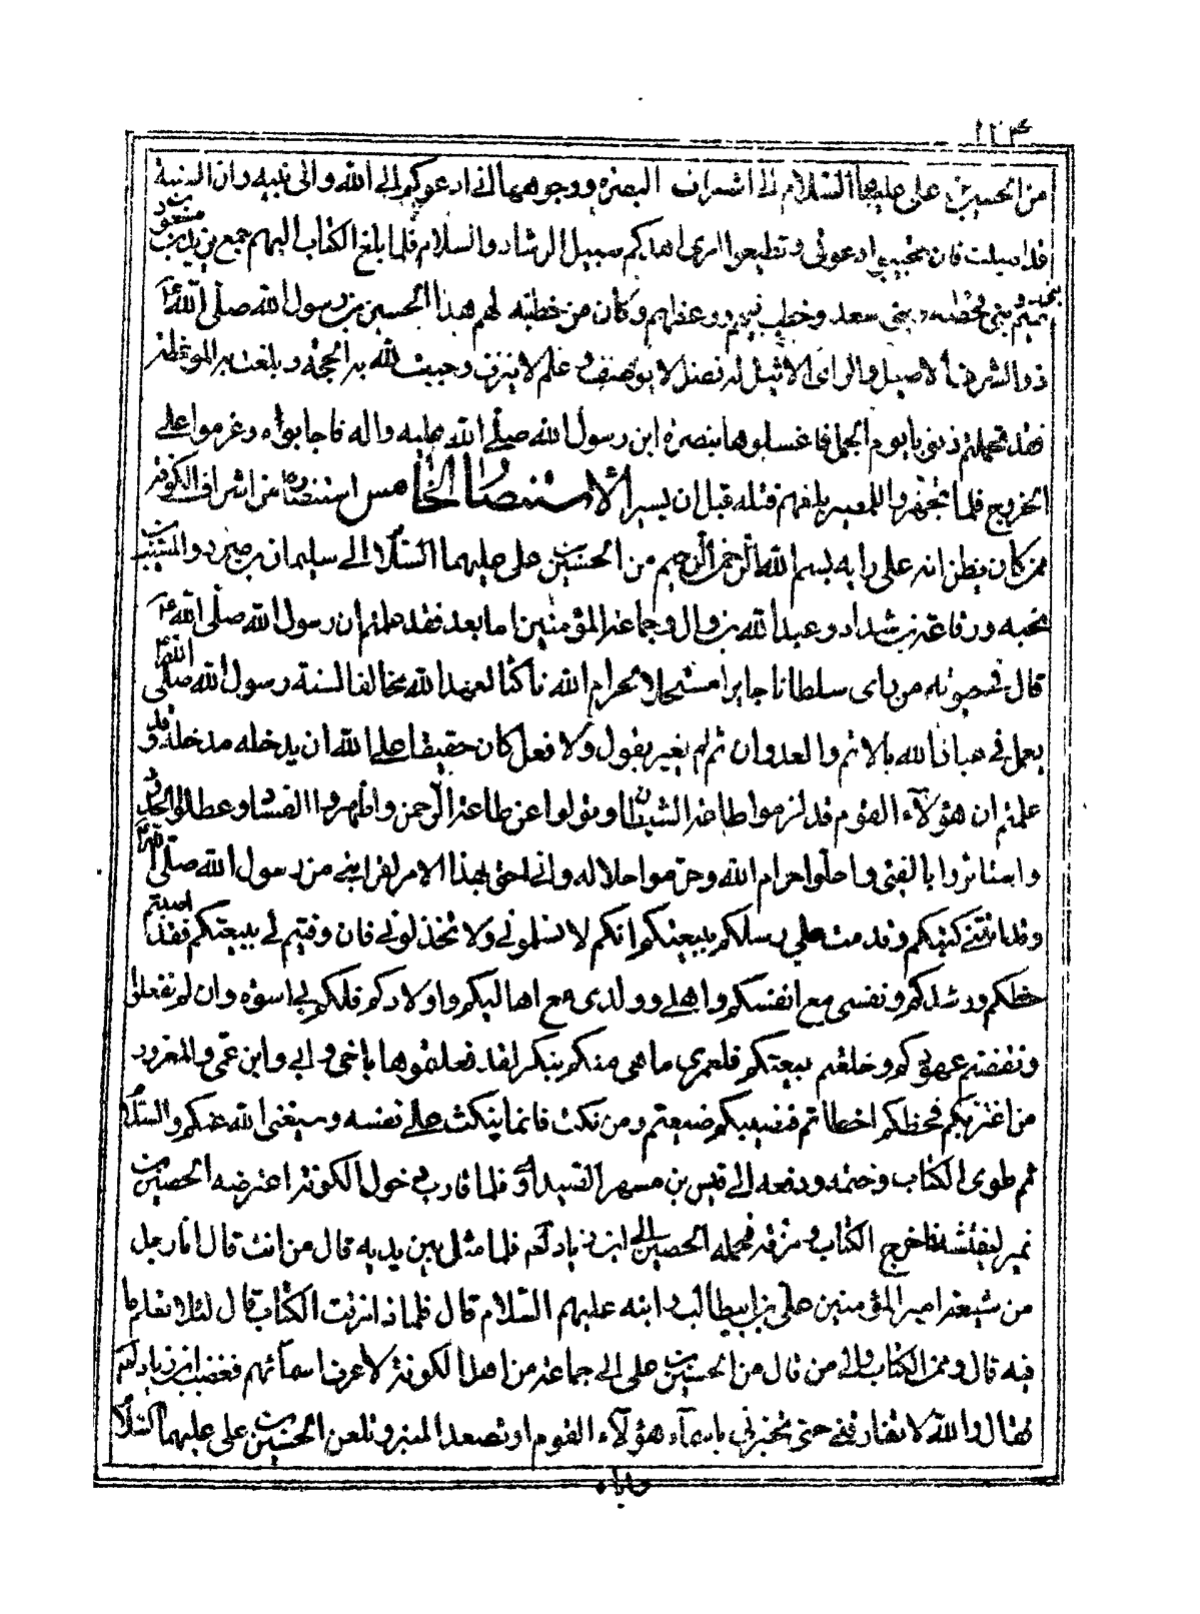 من الحسين بن علي عليهما السلام الى اشراف البصرة ووجوهها اني ادعوكم الى الله والى نبيه وان السنة
قد اميتت فان تجيبوا دعوتي وتطيعوا امري اهدكم سبيل الرشاد والسلام فلما بلغ الكتاب اليهم جمع يزيد بن مسعود
بني تميم وبني حنظلة وبني سعد وخطب فيهم ووعظهم وكان من خطبته لهم هذا الحسين بن رسول الله صلى الله
ذو الشرف الاصيل والراي الاثيل له فضل لا يوصف وعلم لا ينزف وجبت لله به الحجة وبلغت به الموعظة
فقد تحملتم ذنوبا يوم الجمل فاغسلوها بنصرة ابن رسول الله صلى الله عليه واله فاجابوه وعزموا على
الخروج فلما تجهزوا للمسير بلغهم قتله قبل ان يسير الاستنصار الخامس استنصاره من اشراف الكوفة
ممن كان يظن انه على رايه بسم الله الرحمن الرحيم من الحسين بن علي عليهما السلام الى سليمان بن صرد والمسيب بن
نجبه ورفاعة بن شداد وعبد الله بن وال وجماعة المؤمنين اما بعد فقد علمتم ان رسول الله صلى الله
قال في حيوته من راى سلطانا جايرا مستحلا لحرام الله ناكثا لعهد الله مخالفا لسنة رسول الله صلى الله
يعمل في عباد الله بالاثم والعدوان ثم لم يغير بقول ولا فعل كان حقيقا على الله ان يدخله مدخله وقد
علمتم ان هؤلاء القوم قد لزموا طاعة الشيطان وتولوا عن طاعة الرحمن واظهروا الفساد وعطلوا الحدود
واستاثروا بالفئ واحلوا حرام الله وحرموا حلاله واني احق بهذا الامر لقرابتي من رسول الله صلى الله
وقد اتتني كتبكم وقدمت على رسلكم ببيعتكم انكم لا تسلموني ولا تخذلوني فان وفيتم لي ببيعتكم فقد اصبتم
حظكم ورشدكم ونفسي مع انفسكم واهلي وولدي مع اهاليكم واولادكم فلكم بي اسوة وان لم تفعلوا
ونقضتم عهودكم وخلعتم بيعتكم فلعمري ما هي منكم بنكر لقد فعلتموها باخي وابي وابن عمي والمغرور
من اغتر بكم فحظكم اخطاتم ونصيبكم ضيعتم ومن نكث فانما ينكث على نفسه وسيغني الله عنكم والسلام
ثم طوى الكتاب وختمه ودفعه الى قيس بن مسهر الصيداوي فلما قارب دخول الكوفة اعترضه الحصين بن
نمير ليفتشه فاخرج الكتاب ومزقه فحمله الحصين الى ابن زياد لعم فلما مثل بين يديه قال من انت قال انا رجل
من شيعة امير المؤمنين علي بن ابيطالب وابنه عليهم السلام قال فلماذا مزقت الكتاب قال لئلا تعلم ما
فيه قال وممن الكتاب والى من قال من الحسين بن علي الى جماعة من اهل الكوفة لا اعرف اسمائهم فغضب ابن زياد لعم
فقال والله لا تفارقني حتى تخبرني باسماء هؤلاء القوم او تصعد المنبر وتلعن الحسين بن علي عليهما السلام